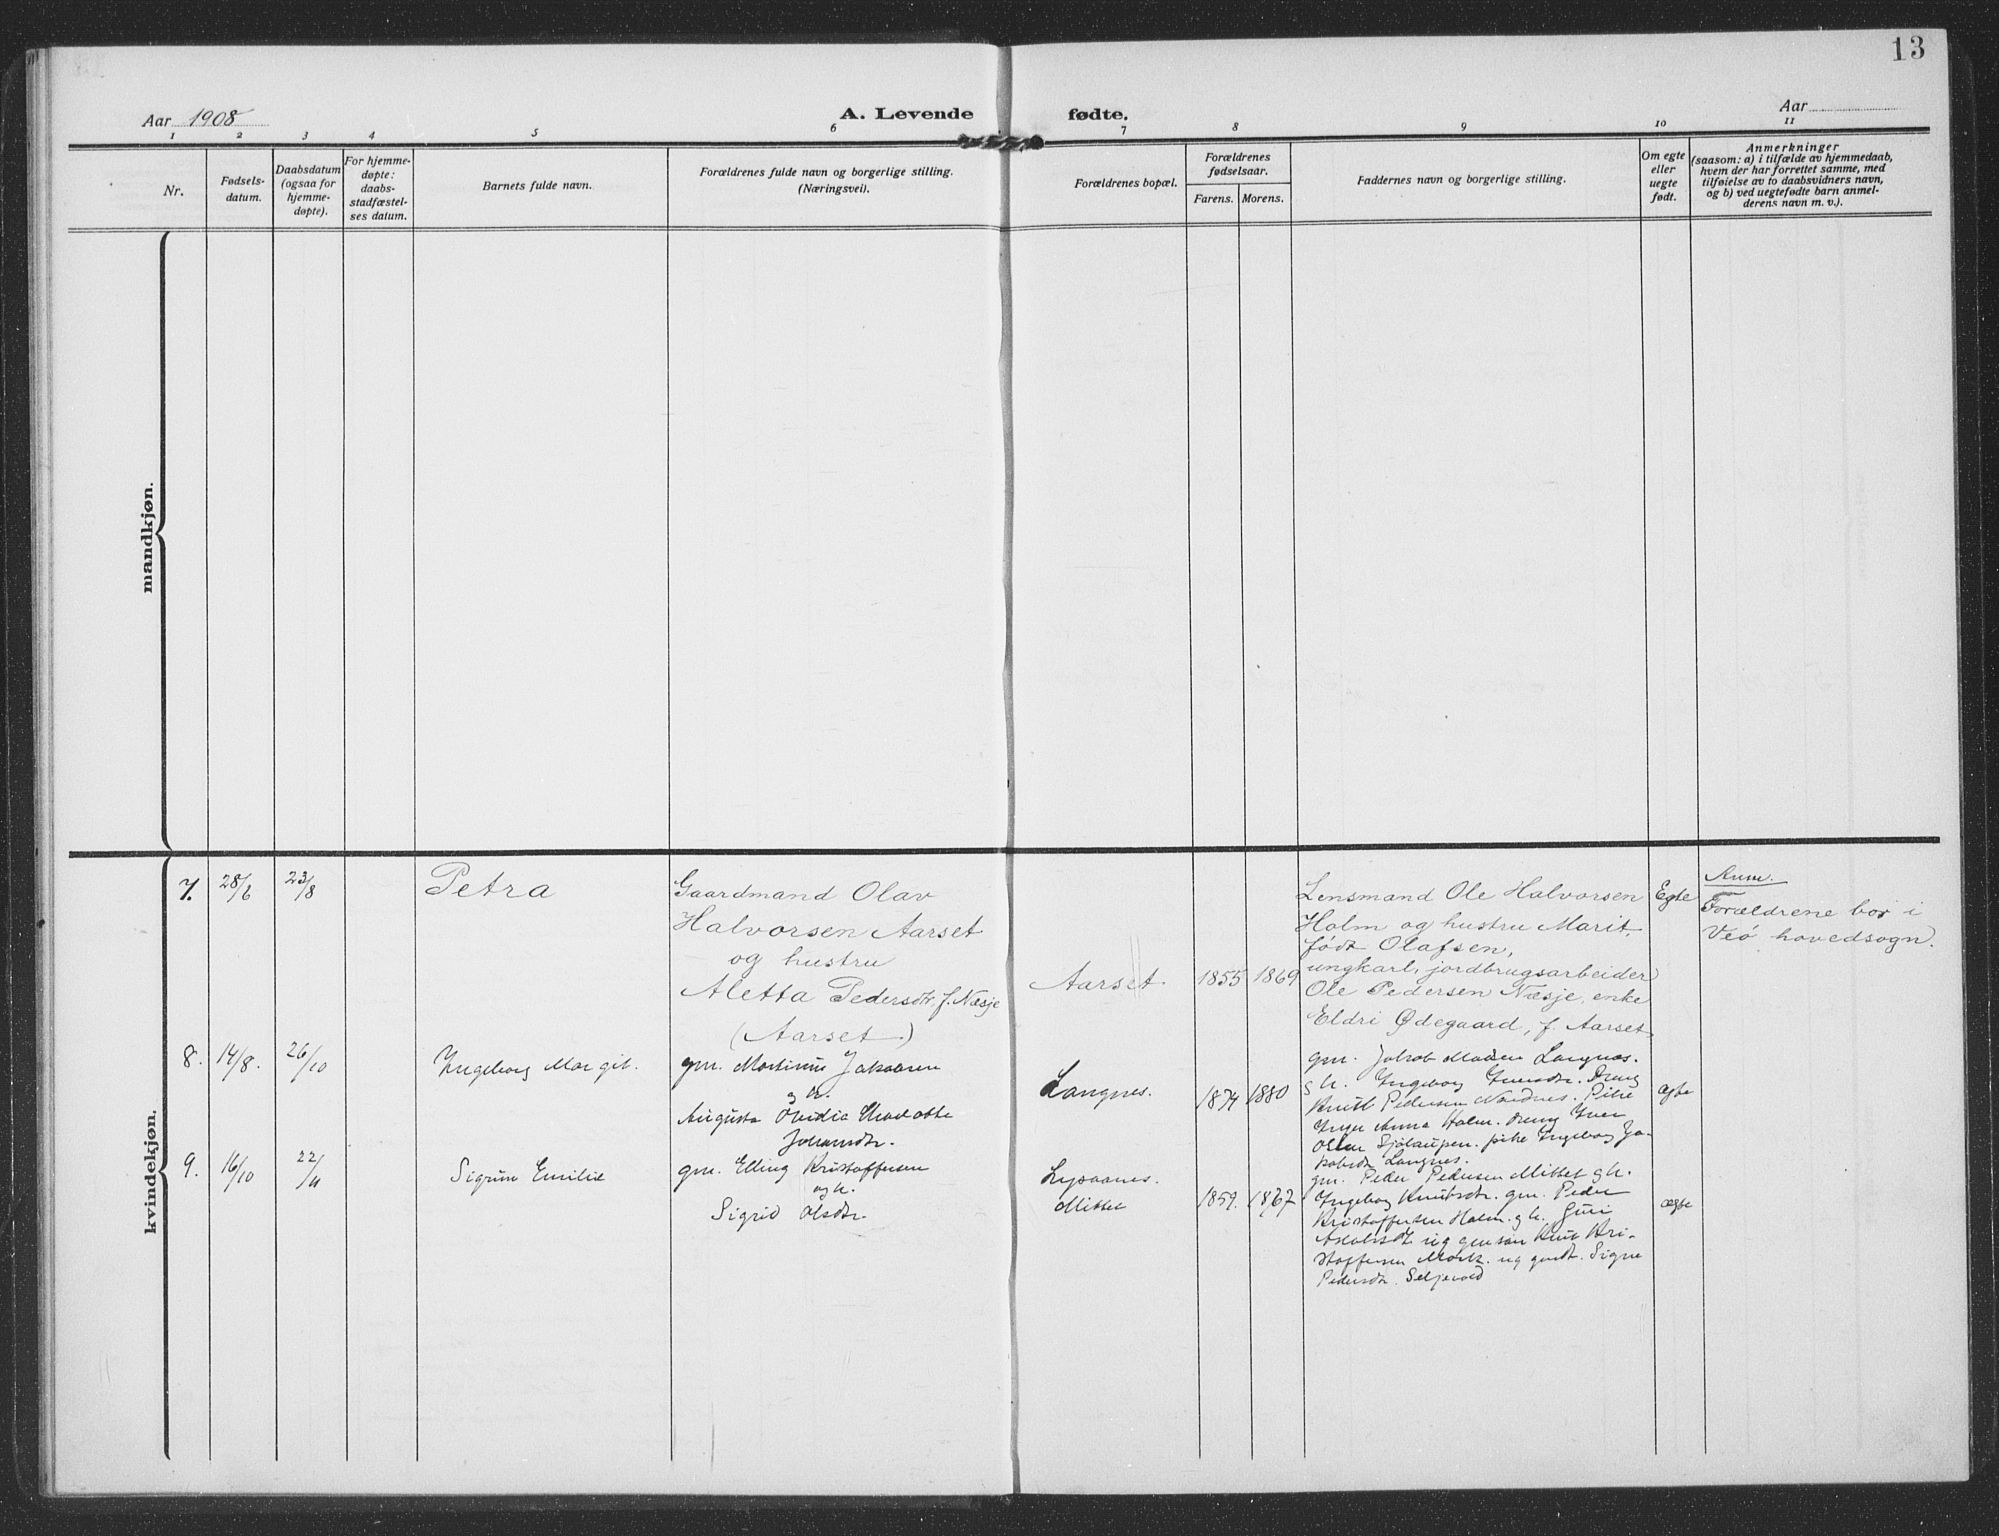 13
Aar 1908
A. Levende fødte.
Aar
1 2 3 4 5 6 7 8 9 10 11
Nr.
Fødsels-
datum.
Daabsdatum
(ogsaa for
hjemme-
døpte).
For hjemme-
døpte:
daabs-
stadfæstel-
ses datum.
Barnets fulde navn.
Forældrenes fulde navn og borgerlige stilling.
(Næringsvei).
Forældrenes bopæl.
Forældrenes
fødselsaar.
Farens. Morens.
Faddernes navn og borgerlige stilling.
Om egte
eller
uegte
født.
Anmerkninger
(saasom: a) i tilfælde av hjemmedaab,
hvem der har forrettet samme, med
tilføielse av to daabsvidners navn,
og b) ved uegtefødte barn anmel-
derens navn m. v.).
mandkjøn.
kvindekjøn.
7.
28/6
23/8
Petra
Gaardmand Olav
Halvorsen Aarset
og hustru
Aletta Pedersdtr. f. Næsje
(Aarset.)
Aarset.
1855 1869
Lensmand Ole Halvorsen
Holm og hustru Marit,
født Olafsen,
ungkarl, jordbrugsarbeider
Ole Pedersen Næsje, enke
Eldri Ødegaard, f. Aarset
Egte
Anm.
Forældrene bor i
Veø hovedsogn.
8.
14/8.
26/10
Ingeborg Margit.
gm. Martinus Jakobsen
g h.
Augusta Ovidia Charlotte
Johansdtr.
Langnes.
1874 1880
gm. Jakob Madsen Langnes.
g h. Ingeborg Iversdtr. Dreng
Knut Pedersen Nordnes. Pike
Inger Anna Holm. Dreng Iver
Olsen. pike Ingeborg Ja-
kobsdtr Langnes.
ægte
9.
16/10
22/11
Sigrun Emilie
gm. Elling Kristoffersen
og h.
Sigrid Olsdtr.
Lysaanes.
Mittet
1859. 1867
gm. Peder Pedersen Mittet g h.
Ingeborg Knutsdtr. gm. Peder
Kristoffersen Holm. g h. Guri
og gm søn Knut Kri-
stoffersen Mork. og gmdt. Signe
Pedersdtr. Seljevold
ægte